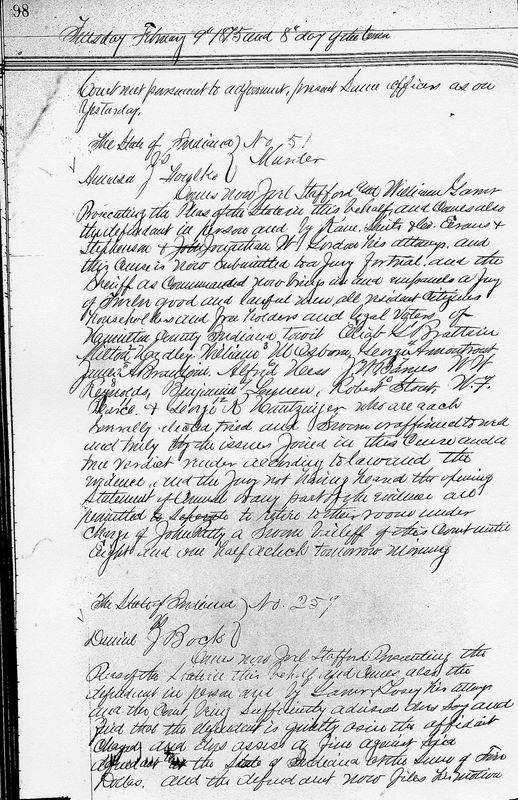 98
Tuesday February 9th 1875 and 8th day of the term
Court met pursuant to adjournment, present Same officers as on
Yesterday.
The State of Indiana } No. 51
vs } Murder
Amasa J
Comes now Joel Stafford and William Garver
Prosecuting the Pleas of the State in this behalf and Comes also
the defendant in person and by Kane, Evans &
Stephenson & John Jonathan W Gordon his attys. and
this Cause is now Submitted to a Jury for trial. and the
Sheriff as Commanded now brings in and empanels a Jury
of Twelve good and lawful men, all resident Citizens
householders and free holders and legal Voters of
Hamilton County Indiana towit
Milton Hadley William M Osborn, George Armontrout
James A Alfred Hess J W W W
Reynolds, Benjamin Robert Stout W. F.
Pearce & George R who are each
severally elected tried and Sworn or affirmed to well
and truly try the issues Joined in this Cause and a
true verdict render according to law and the
evidence, and the Jury not having heard the opening
Statement of Counsel or any part of the evidence are
permitted to Seperate to retire to their room under
Charge of John a Sworn bailiff of this Court until
Eight and one half oclock tomorrow morning
The State of Indiana } No. 257
vs
Daniel J Bock }
Comes now Joel Stafford Prosecuting the
Pleas of the State in this behalf and Comes also the
defendant in person and by Garver & Losey his attys
and the Court being Sufficiently advised does Say and
find that the defendant is guilty as in the affidavit
Charged and does assess a fine against Said
defendant to the State of Indiana in the Sum of Five
Dollars. and the defendant now files his motion